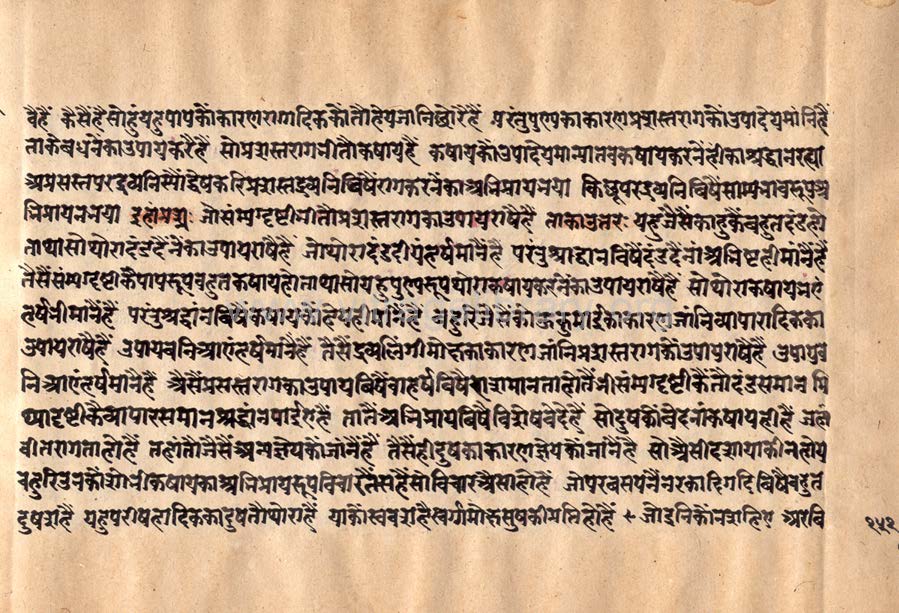 वैहैं कैसैंहैसोहुंयहुपापकौंकारणरागादिककौंतौहेयजांनिछोरैहैं परंतुपुण्यकाकारणप्रशस्तरागकौंउपादेयमांनैंहैं
ताकेबधनेंकाउपायकरैहैं सोप्रशस्तरागभीतौकषायहैं कषायकौंउपादेयमान्यातबकषायकरनेंहीकाश्रद्धानरह्या
अप्रसस्तपरद्रव्यनिस्यौंद्वेषकरिप्रशस्तद्रव्यनिविषैंरागकरनेंकाअभिप्रायभया किछूपरद्रव्यनिविषैंसाम्यभावरूपअ
भिप्रायनभया इहांप्रश्न जौसंम्यग्दृष्टीभीतौप्रशस्तरागकाउपायराषैहैं ताकाउत्तरः यहजैसैंकाहूकैबहुतदंडहो
ताथासोथोरादंडदेनेंकाउपायराषैहैं जोथोरादंडदीयेंहर्षमांनैंहैं परंतुश्रद्धानविषैंदंडदेनांअनिष्टहीमांनैंहैं
तैसैंसंम्यग्दृष्टीकैपापरूपबहुतकषायहोताथासोयहुपुण्यरूपथोराकषायकरनेंकाउपायराषैहैं सोथोराकषायभएं
हर्षभीमांनैंहैं परंतुश्रद्धानविषैंकषायकौंहेयहीमांनैहैं बहुरिजैसैंकोऊकुमाईकाकारणजांनिव्यापारादिकका
उपायराषैहैं उपायबनिआएंहर्षमांनैंहैं तैसैंद्रव्यलिंगीमोक्षकाकारणजांनिप्रशस्तरागकौंउपायराषैहैं उपायब
निआएंहर्षमांनैहैं अैसैंप्रसस्तरागकाउपायविषैंवाहर्षविषैंसमानताहोतैंभीसंम्यग्दृष्टीकैंतौदंडसमान मि
थ्यादृष्टीकैंव्यापारसमानश्रद्धानपाईएहैं तातैंअभिप्रायविषैंविशेषवेदेहैं सोदुषकौंवेदनांकषायहीहैं जेहां
वीतरागताहोहैं तहांतौजैसैंअन्यज्ञेयकौंजांनैंहैं तैसैंहीदुषकाकारणज्ञेयकौंजांनैंहैं सोअैसीदशायाकीनहोय
बहुरिउनकौंभीकषायकाअभिप्रायरूपविचारतैंसहैंसोविचारअैसाहोहैं जोपरवसपनेंनरकादिगतिविषैंबहुत
दुषसहैं यहुपरीषहादिककादुषतौथोराहैं याकौंस्ववशसहैंस्वर्गमोक्षसुषकीप्राप्तिहोहैं जोइनिकौंनसहिए अरवि
२५२